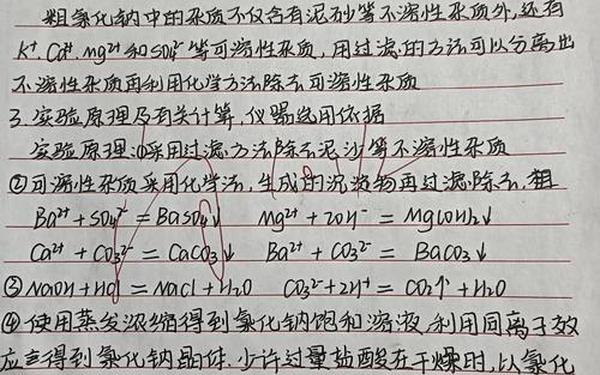 粗氯化钠中的杂质不仅含有泥砂等不溶性杂质外,还有
K⁺、Ca²⁺、Mg²⁺和SO₄²⁻等可溶性杂质,用过滤的方法可以分离出
不溶性杂质再利用化学方法除去可溶性杂质
3.实验原理及有关计算,仪器选用依据
实验原理:①采用过滤方法除去泥沙等不溶性杂质
②可溶性杂质采用化学法,生成的沉淀物再过滤除去,粗
Ba²⁺+SO₄²⁻=BaSO₄↓ Mg²⁺+2OH⁻=Mg(OH)₂↓
Ca²⁺+CO₃²⁻=CaCO₃↓ Ba²⁺+CO₃²⁻=BaCO₃↓
③NaOH+HCl=NaCl+H₂O CO₃²⁻+2H⁺=CO₂↑+H₂O
④使用蒸发浓缩得到氯化钠饱和溶液,利用同离子效
应得到氯化钠晶体.少许过量盐酸在干燥时,以氯化